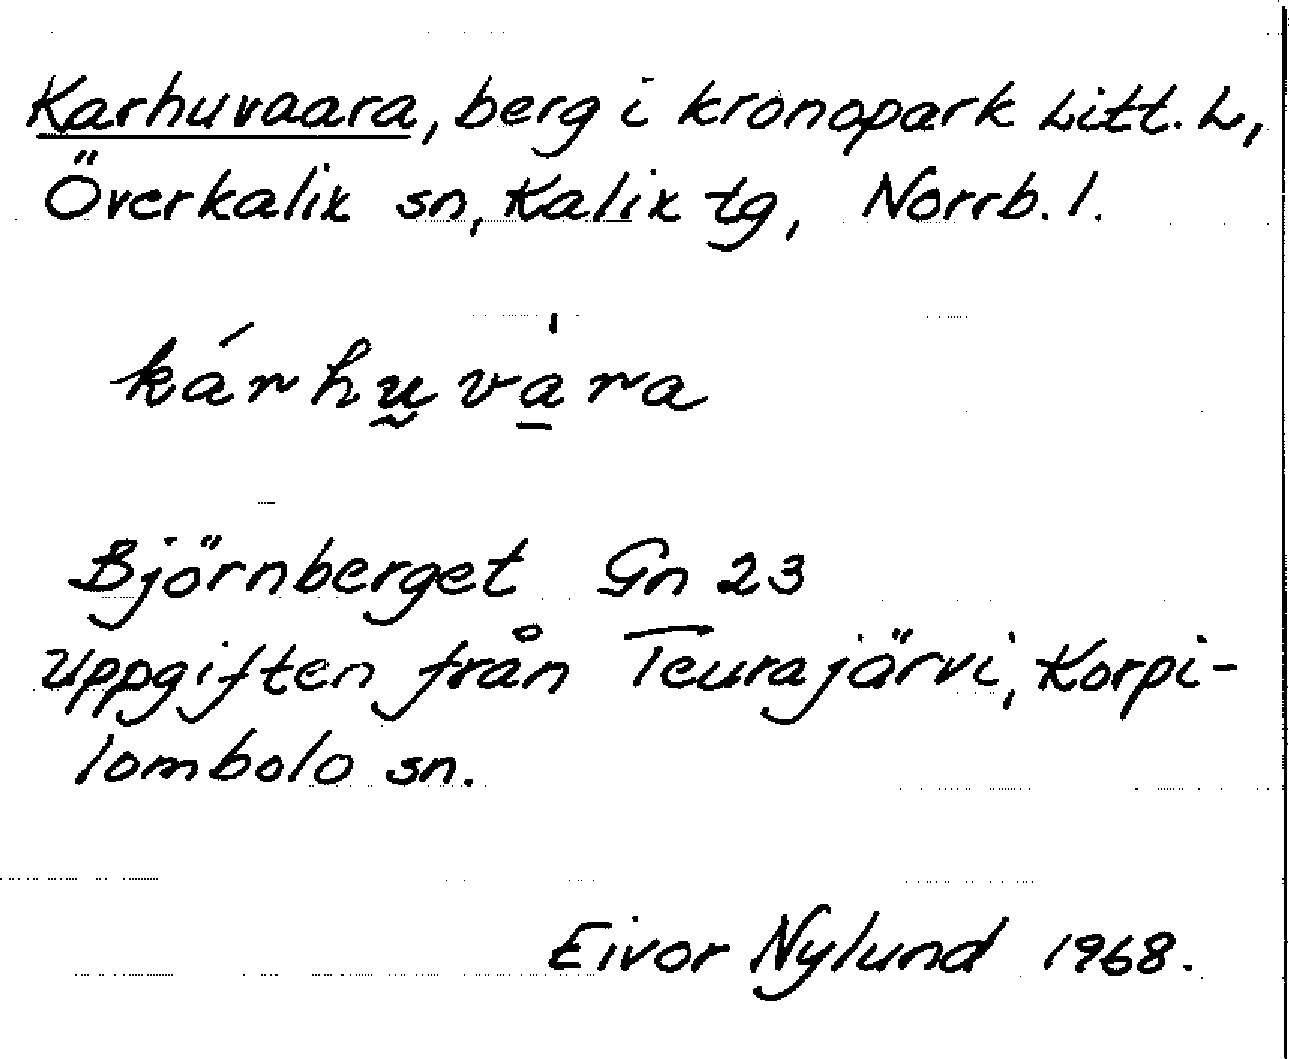 Karhuvaara, berg i kronopark Litt. L,
Överkalix sn, Kalix tg, Norrb. l.
kárhu̬và̱ra
Björnberget Gn 23
Uppgiften från Teurajärvi, Korpi-
lombolo sn.
Eivor Nylund 1968.